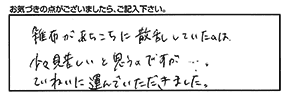 お気づきの点がございましたら、ご記入下さい。
雑布があちこちに散乱していたのは
少々見苦しいと思うのですが…。
ていねいに運んでいただきました。